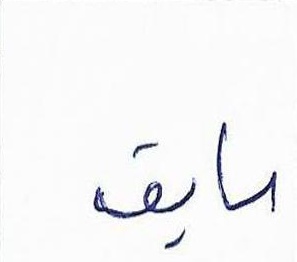 سايق